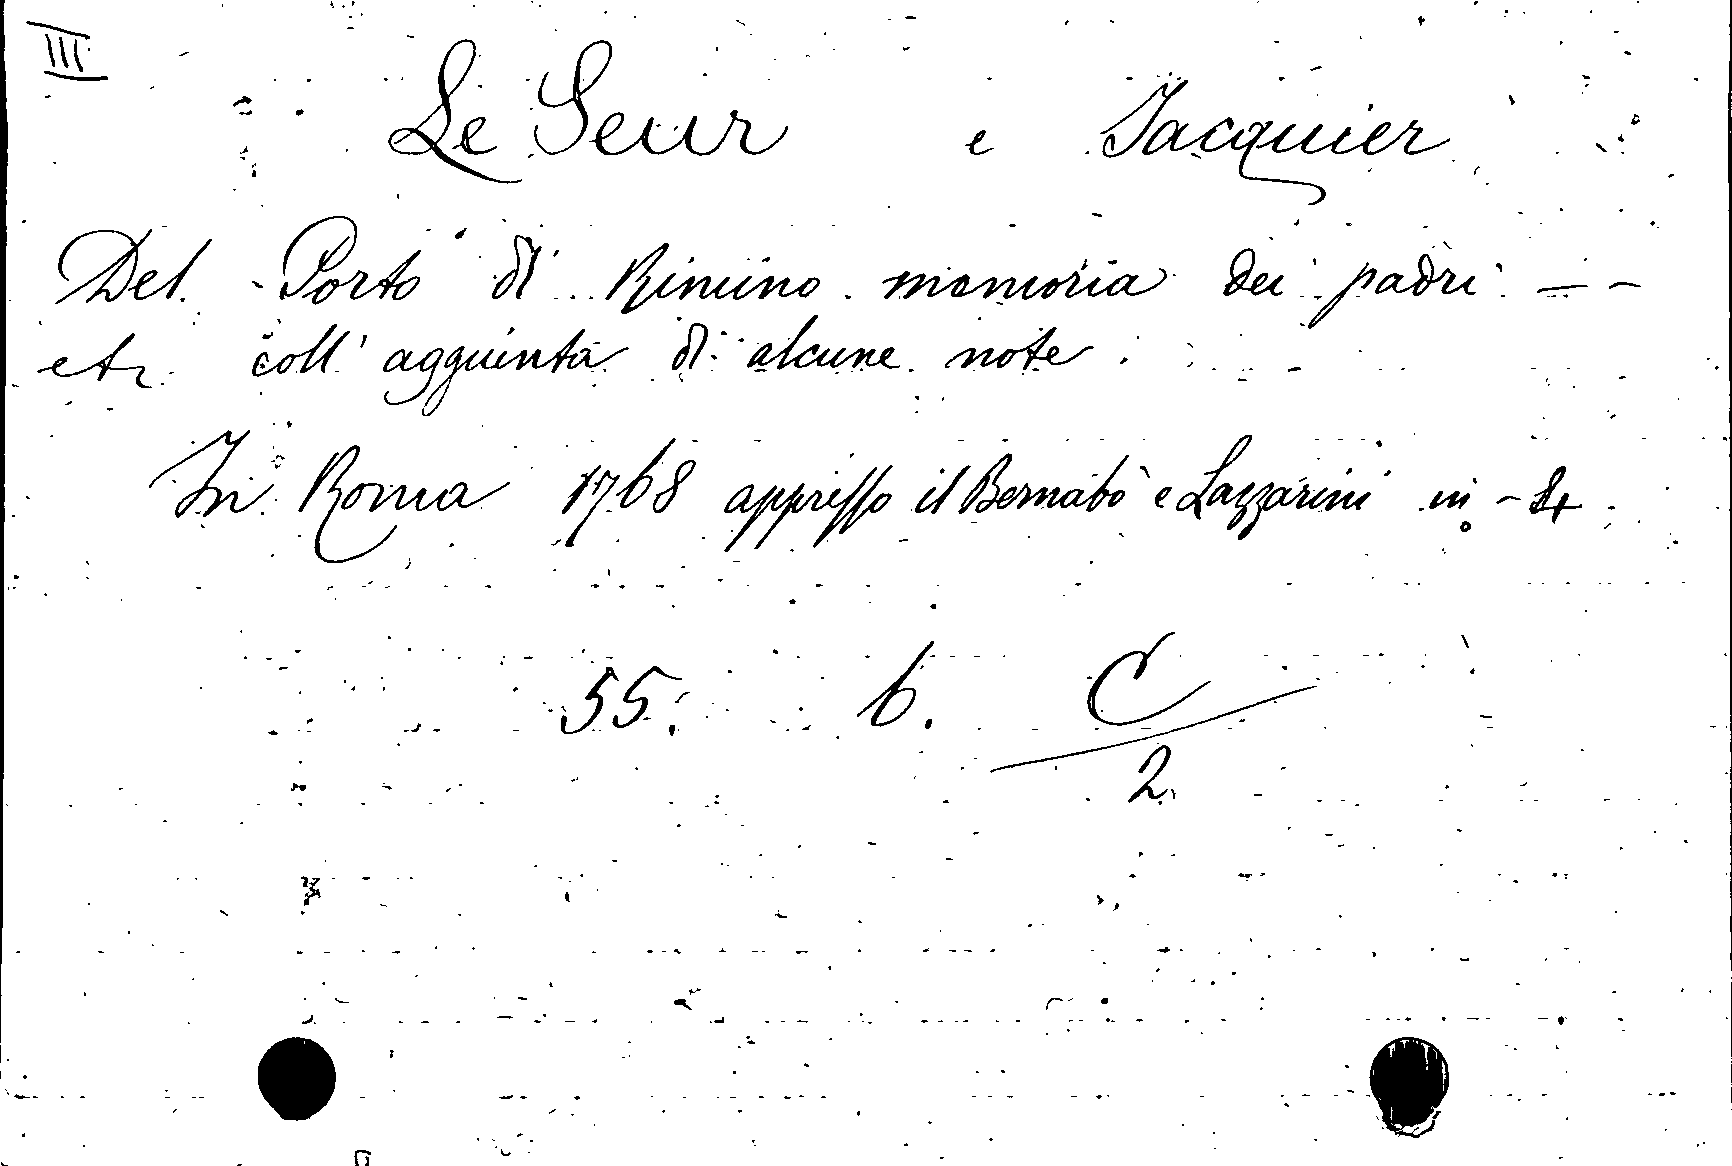 III
Le Seur e Jacquier
Del Porto di Rimino memoria dei padri - -
etc coll' agguinta di alcune note.
In Roma 1768 appresso il Bernabò e Lazzarini in -
55. b. C
2.